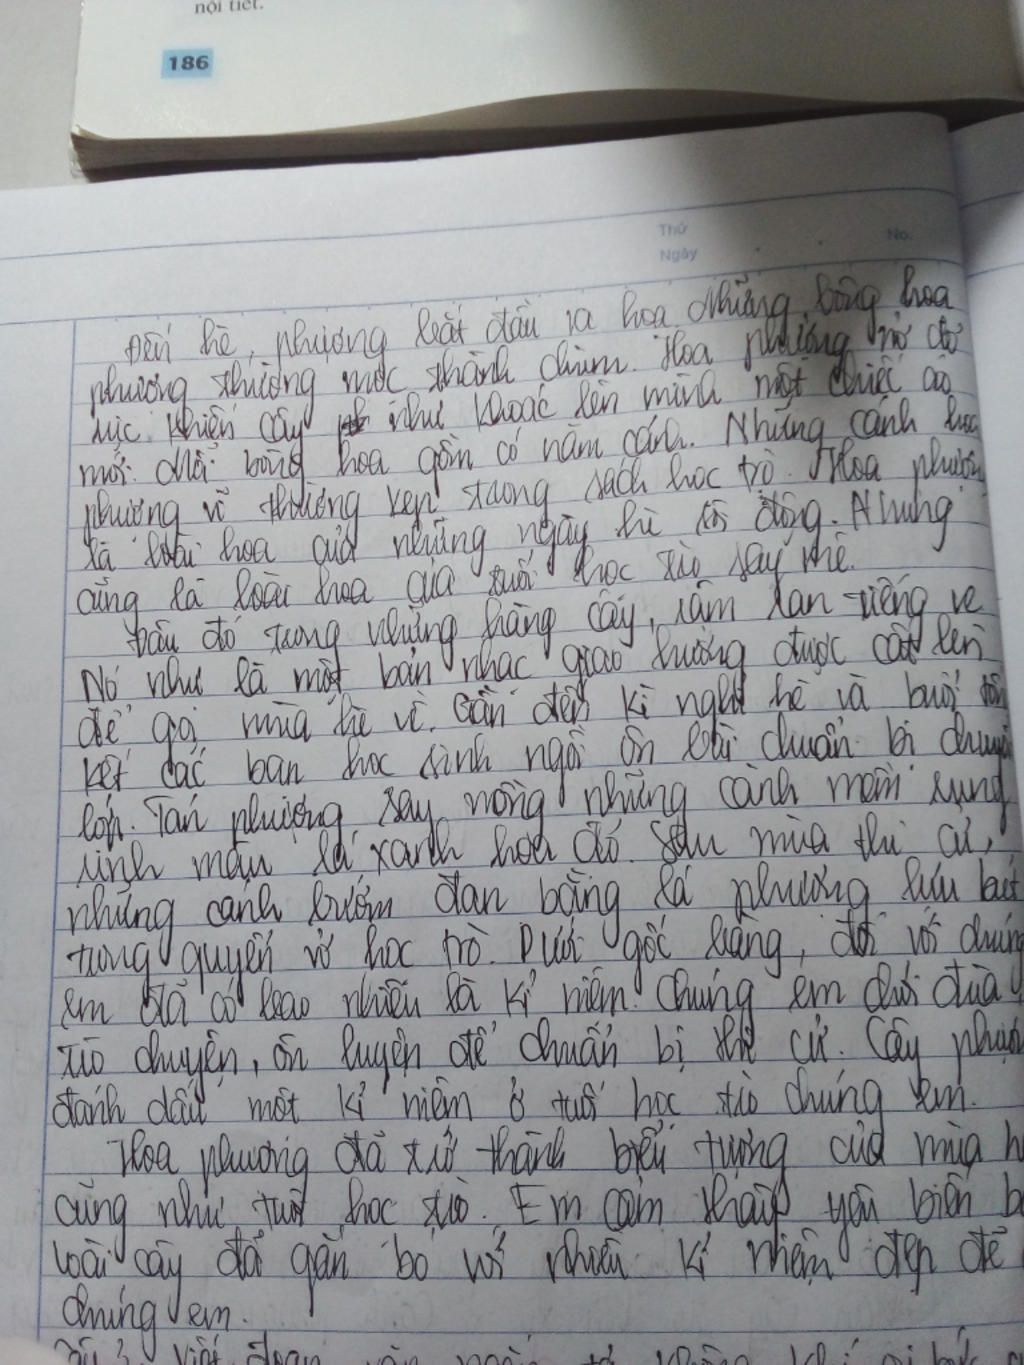 nội tiết.
186
Thứ
Ngày
No.
Đến hè, phượng bắt đầu ra hoa Những bông hoa
phượng thường mọc thành chùm. Hoa phượng nở đỏ
rực khiến cây như khoác lên mình một chiếc áo
mới. Mỗi bông hoa gồm có năm cánh. Những cánh hoa
phượng vĩ thường kẹp trong sách học trò. Hoa phượng
là loài hoa của những ngày hè sôi động. Nhưng
cũng là loài hoa của tuổi học trò say mê.
Đâu đó trong những hàng cây, râm ran tiếng ve
Nó như là một bản nhạc giao hưởng được cất lên
để gọi mùa hè về. Gần đến kì nghỉ hè và buổi tổng
kết các bạn học sinh ngồi ôn bài chuẩn bị chuyển
lớp. Tán phượng say nồng những cành mềm rung
rinh màu lá xanh hoa đỏ. Sau mùa thi cử,
những cánh bướm đan bằng lá phượng lưu bút
trong quyển vở học trò. Dưới gốc bàng, đối với chúng
em đã có bao nhiêu là kỉ niệm. Chúng em chơi đùa
trò chuyện, ôn luyện để chuẩn bị thi cử. Cây phượng
đánh dấu một kỉ niệm ở tuổi học trò chúng em.
Hoa phượng đã trở thành biểu tượng của mùa
cũng như tuổi học trò. Em cảm thấy yêu biến
loài cây đã gắn bó với nhiều kỉ niệm đẹp đẽ
chúng em.
viết đoạn văn ngắn tả không khí